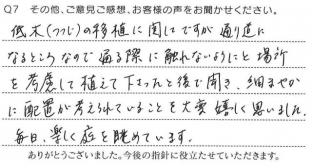 Q7 その他、ご意見ご感想、お客様の声をお聞かせください。
低木(つつじ)の移植に関してですが 通り道に
なるところなので通る際に触れないようにと場所
を考慮して植えて下さったと後で聞き、細まやか
に配置が考えられていることを大変嬉しく思いました。
毎日、楽しく庭を眺めています。
ありがとうございました。今後の指針に役立たせていただきます。